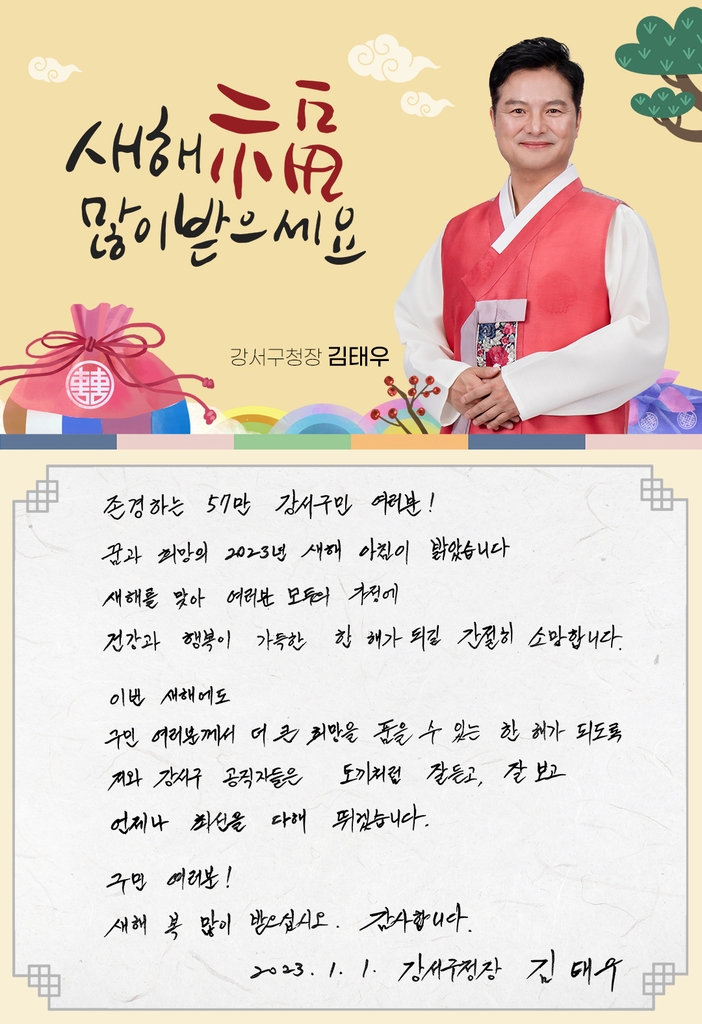 새해 福
많이 받으세요
강서구청장 김태우
존경하는 57만 강서구민 여러분!
꿈과 희망의 2023년 새해 아침이 밝았습니다
새해를 맞아 여러분 모두의 가정에
건강과 행복이 가득한 한 해가 되길 간절히 소망합니다.
이번 새해에도
구민 여러분께서 더 큰 희망을 품을 수 있는 한 해가 되도록
저와 강서구 공직자들은 토끼처럼 잘듣고, 잘 보고
언제나 최선을 다해 뛰겠습니다.
구민 여러분!
새해 복 많이 받으십시오. 감사합니다.
2023. 1. 1. 강서구청장 김태우